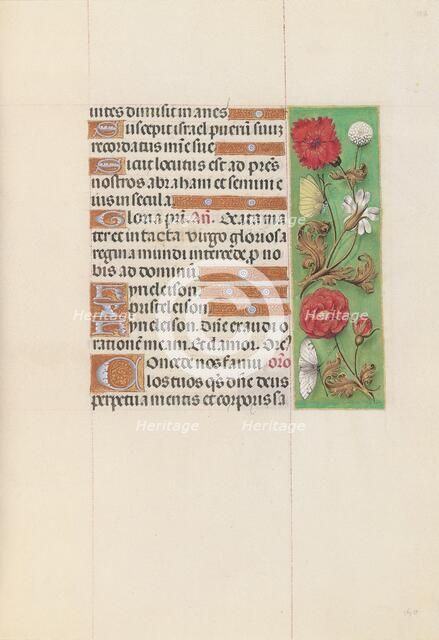 uites dimisit inanes
Suscepit israel puerum suum
recordatus mīe sue
Sicut locutus est ad pres
nostros abraham et semini e
ius in secula
Gloria pri. Añ. Beata ma
ter et intacta virgo gloriosa
regina mundi intercede p no
bis ad dominū
Kyrieleison
Xpisteleison
Kyrieleison. Dn̄e exaudi o
rationem meam. Et clamor. Ore᷑
Concede nos famu oro
los tuos q̄s dn̄e deus
perpetua mentis et corporis sa
Heritage
Heritage
Heritage
Heritage
Heritage
Heritage